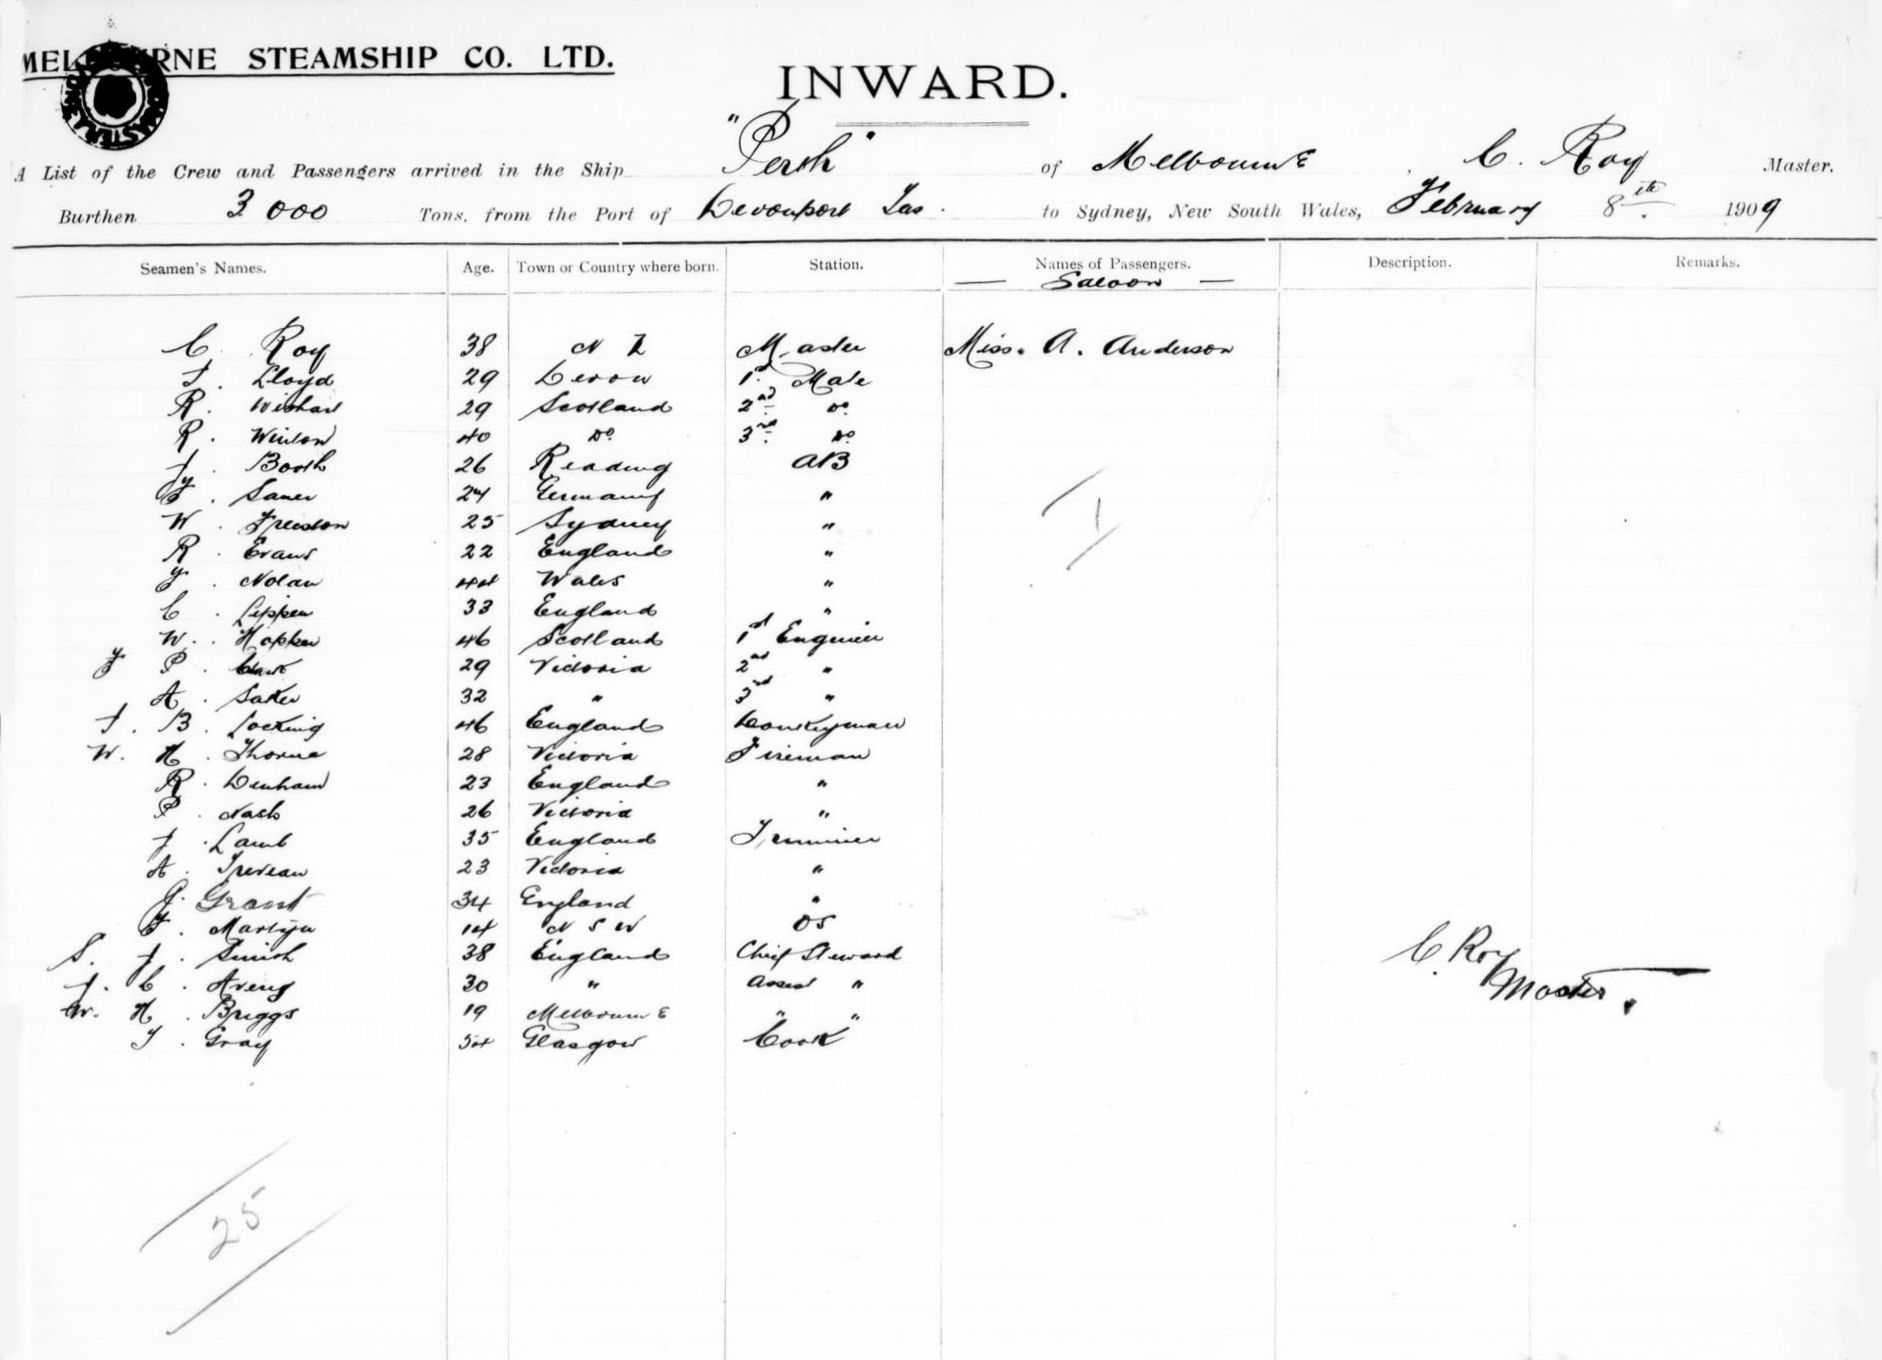 MELBOURNE STEAMSHIP CO. LTD.
INWARD.
A List of the Crew and Passengers arrived in the Ship "Perth" of Melbourne, C. Roy Master.
Burthen 3000 Tons, from the Port of Devonport Tas. to Sydney, New South Wales, February 8th 1909
Seamen's Names. Age. Town or Country where born. Station. Names of Passengers. Description. Remarks.
— Saloon —
C. Roy 38 N Z Master Miss. A. Anderson
Lloyd 29 Devon 1st Mate
R. Wishart 29 Scotland 2nd Do
R. Winton 40 Do 3rd Do
J. Booth 26 Reading AB
Sauer 24 Germany "
W. Freeston 25 Sydney "
R. Evans 22 England "
Nolan 44 Wales "
C. 33 England "
W. 46 Scotland 1st Engineer
P. 29 Victoria 2nd "
A. 32 " 3rd "
B. Locking 46 England Donkeyman
W. H. Thorne 28 Victoria Fireman
R. Denham 23 England "
P. Nash 26 Victoria "
J. Lamb 35 England Trimmer
A. 23 Victoria "
G. Grant 34 England "
Martyn 14 N S W OS
S. J. Smith 38 England Chief Steward
J. C. Avery 30 " Assist "
W. H. Briggs 19 Melbourne " "
Gray 54 Glasgow Cook
1
C. Roy
Master.
25